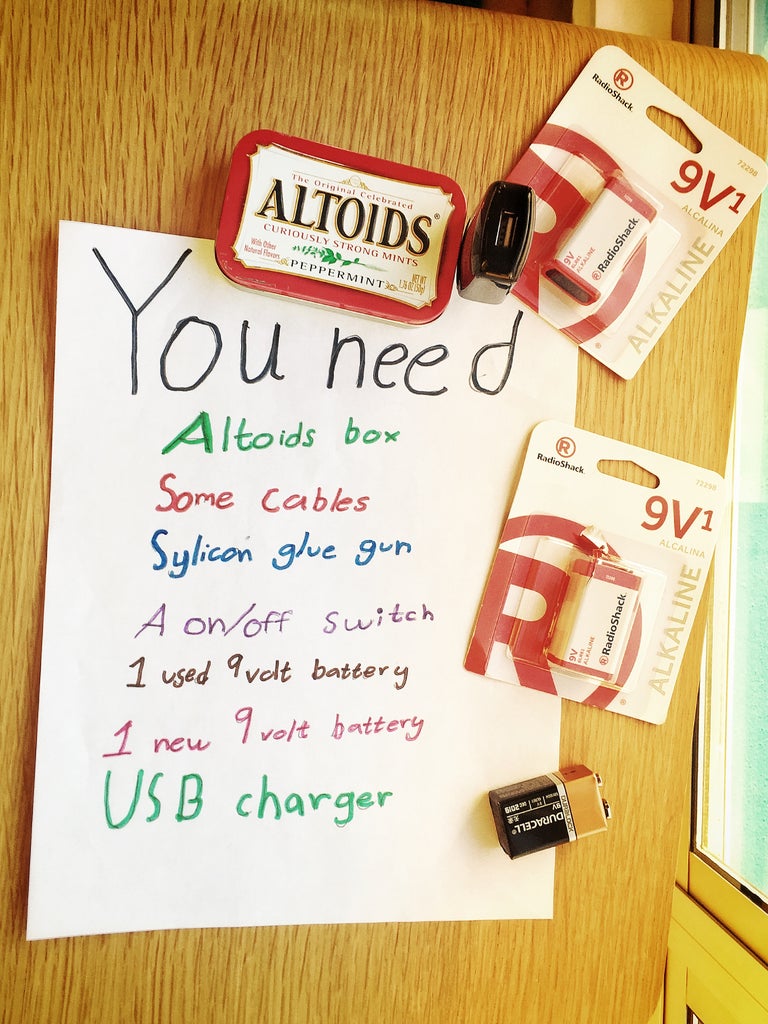 The Original Celebrated
ALTOIDS®
CURIOUSLY STRONG MINTS
With Other
Natural Flavors
PEPPERMINT
NET WT
1.76 OZ (50g)
R
RadioShack
72298
9V1
ALCALINA
ALKALINE
9V
ALKALINE
RadioShack
You need
Altoids box
Some cables
Sylicon glue gun
A on/off switch
1 used 9volt battery
1 new 9volt battery
USB charger
R
RadioShack
72298
9V1
ALCALINA
ALKALINE
9V
ALKALINE
RadioShack
DURACELL
9V
DEC 2019